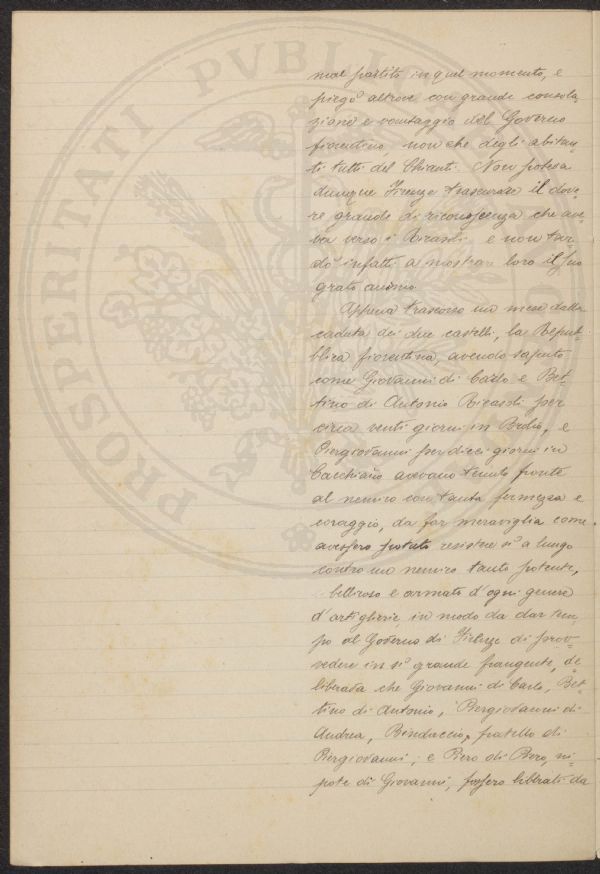 mal partito in quel momento, e
piegò altrove con grande consola-
zione e vantaggio del Governo
fiorentino, non che degli abitan-
ti tutti del Chianti. Non poteva
dunque Firenze trascurare il dove-
re grande di riconoscenza che ave-
va verso i Ricasoli e non tar-
dò infatti a mostrar loro il suo
grato animo.
Appena trascorso un mese dalla
caduta dei due castelli, la Repub-
blica fiorentina, avendo saputo
come Giovanni di Carlo e Bet-
tino di Antonio Ricasoli per
circa venti giorni in Brolio, e
Piergiovanni per dieci giorni in
Cacchiano avevano tenuto fronte
al nemico con tanta fermezza e
coraggio, da far meraviglia come
avessero potuto resistere sì a lungo
contro un nemico tanto potente,
bellicoso e armato d'ogni genere
d'artiglierie, in modo da dar tem-
po al Governo di Firenze di prov-
vedere in sì grande frangente, de-
liberava che Giovanni di Carlo, Bet-
tino di Antonio, Piergiovanni di
Andrea, Bindaccio, fratello di
Piergiovanni; e Piero di Piero, ni-
pote di Giovanni, fossero liberati da
PROSPERITATI PVBLICAE